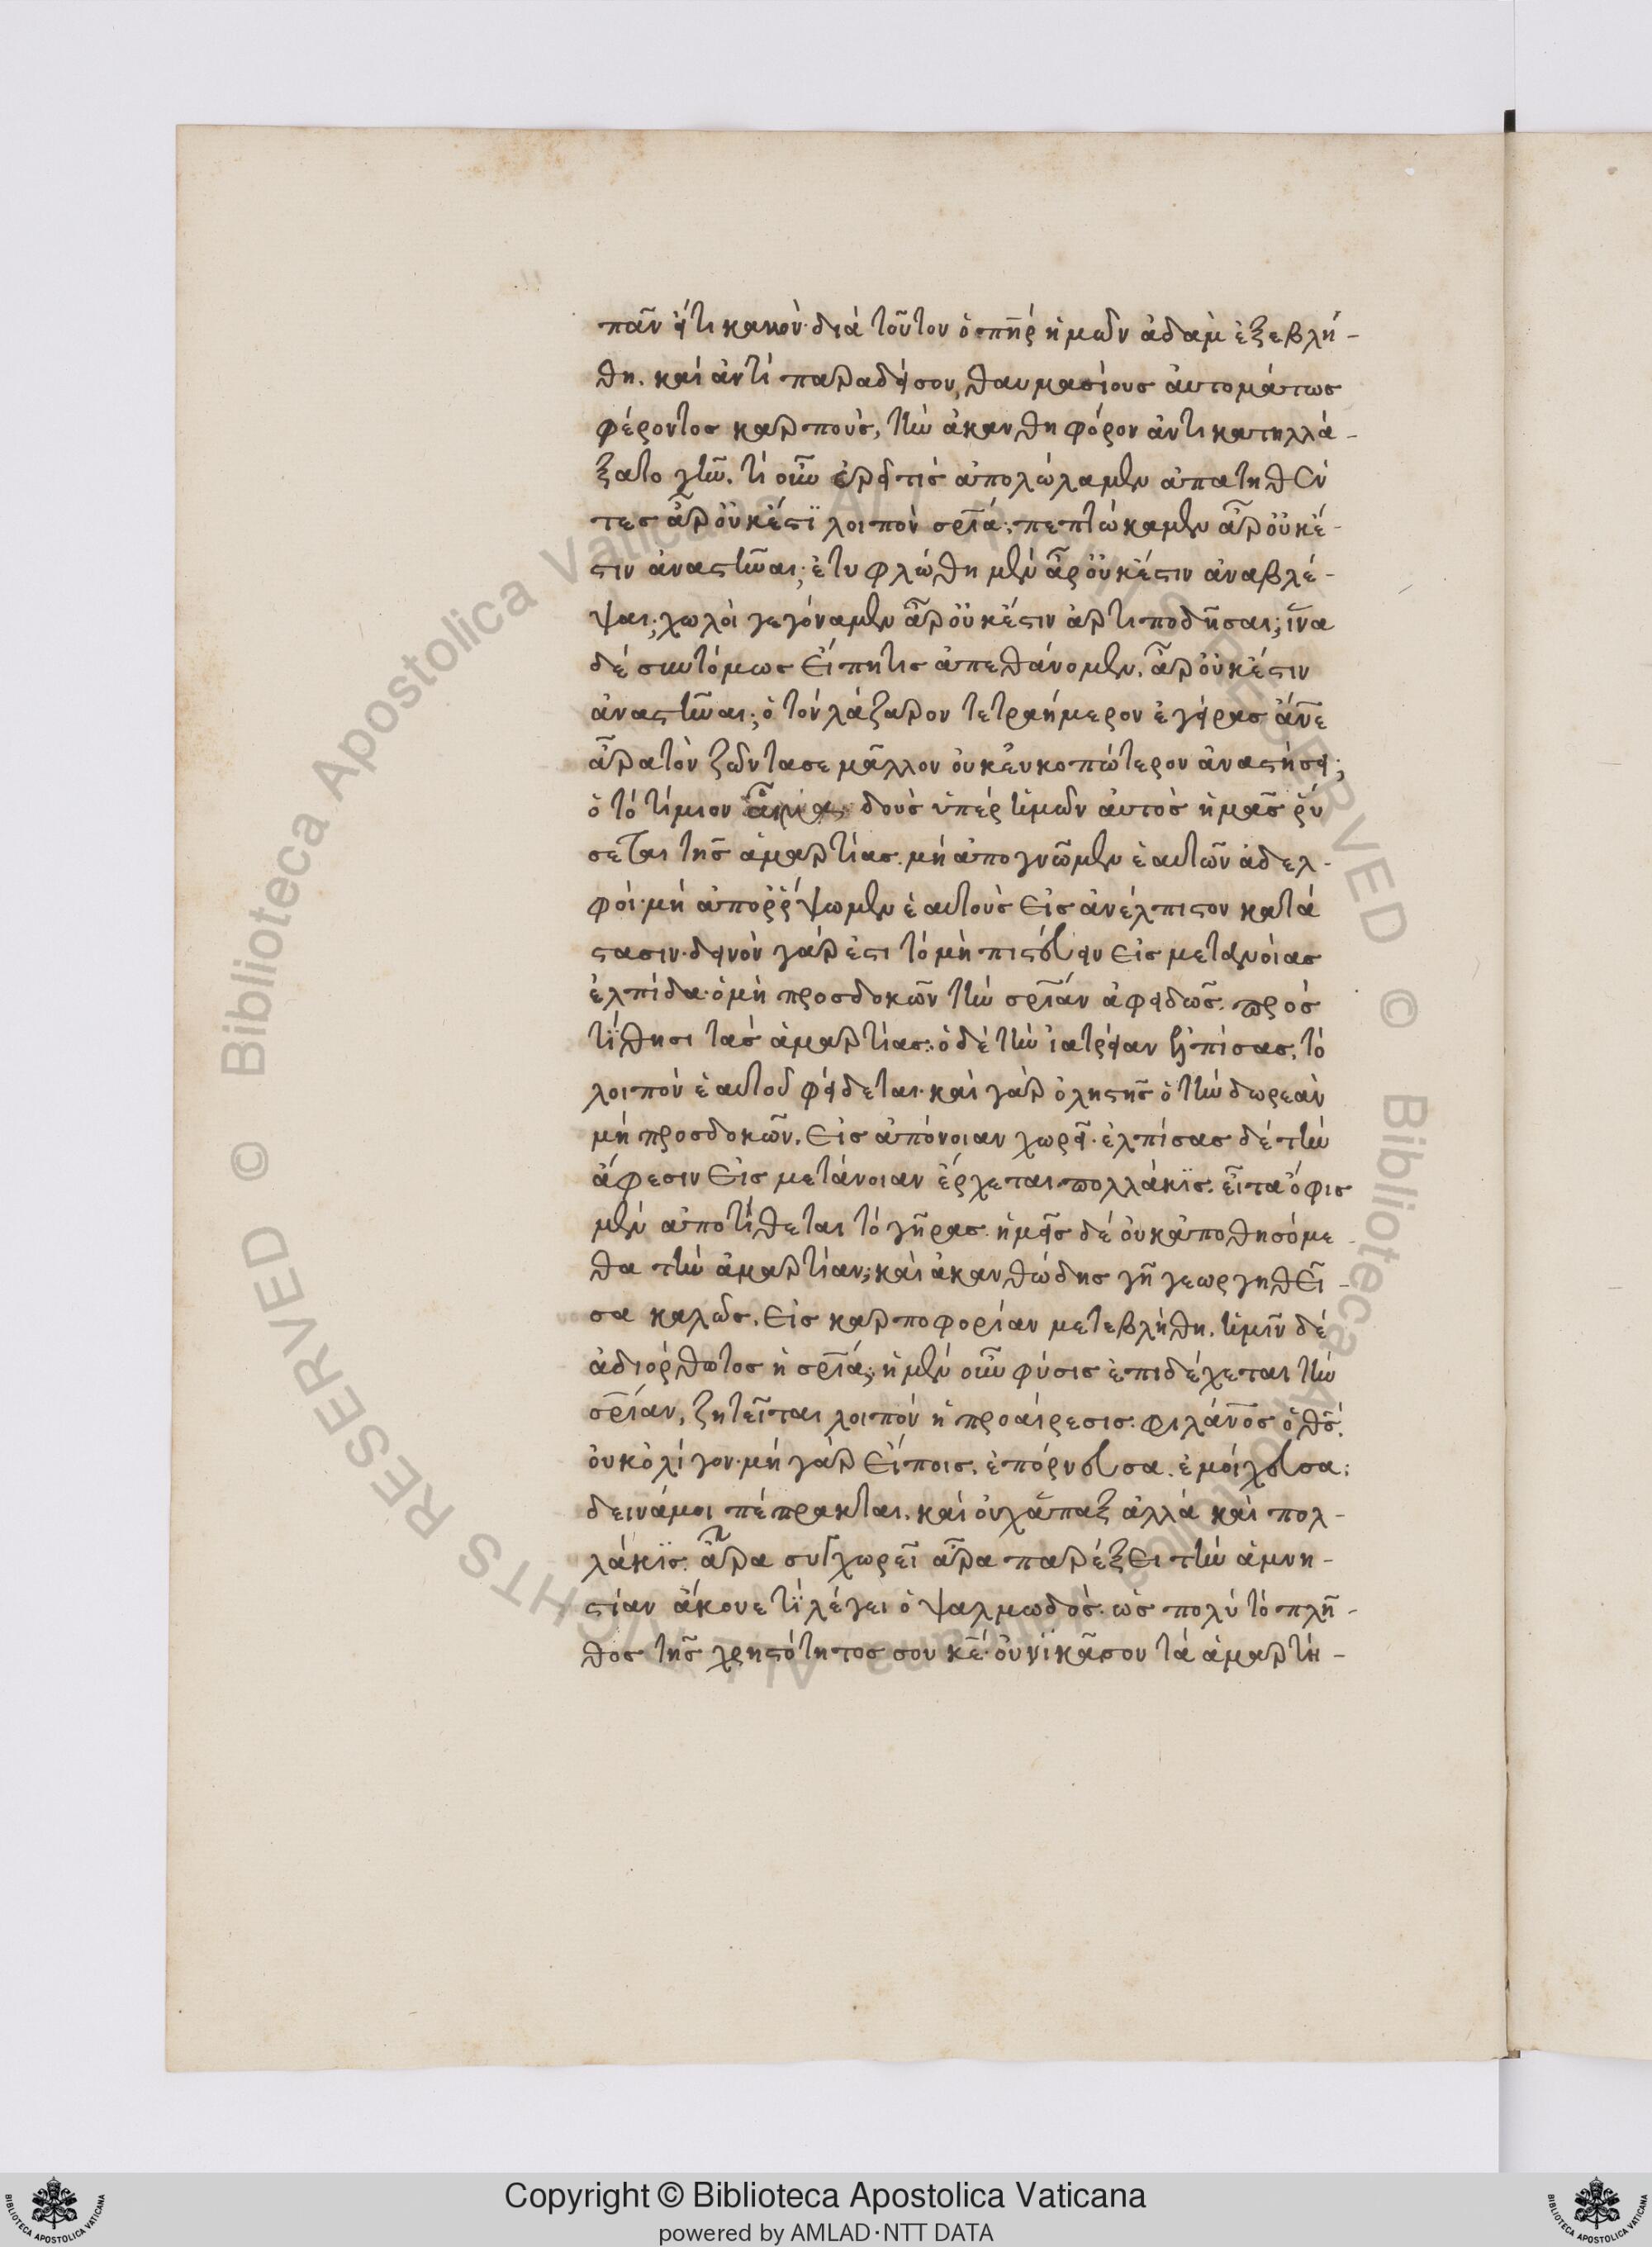 πᾶν εἴτι κακὸν· διὰ τοῦτον ὁ π̅η̅ρ ἡμῶν ἀδὰμ ἐξεβλή-
θη. καὶ ἀντὶ παραδείσου, θαυμασίους αὐτομάτως
φέροντος καρποὺς, τὴν ἀκανθηφόρον ἀντικατηλλά-
ξατο γῆν. τί οὖν ἐρεῖ τίς ἀπολώλαμεν ἀπατηθέν
τες ἆρ οὐκ ἔστϊ λοιπὸν σ̅ρ̅ία; πεπτώκαμεν ἆρ οὐκ έ-
στιν ἀναστῆναι; ἐτυφλώθημεν ἆρ οὐκ έστιν ἀναβλέ-
ψαι; χωλοὶ γεγόναμεν ἆρ οὐκ έστιν ἀρτιποδῆσαι; ἵνα
δὲ συντόμως εἴπη τις ἀπεθάνομεν. ἆρ οὐκ έστιν
ἀναστῆναι; ὁ τὸν λάζαρον τετραήμερον ἐγείρας ἄ̅ν̅ε
ἆρα τὸν ζῶντα σε μᾶλλον οὐκ εὐκοπώτερον ἀναστήσει;
ὁ τὸ τίμιον δοὺς ὑπὲρ ἡμῶν αὐτὸς ἡμᾶς ῥύ
σεται τῆς ἁμαρτίας. μὴ ἀπογνῶμεν ἑαυτῶν ἀδελ-
φοί· μὴ ἀπορρίψωμεν ἑαυτοὺς εἰς ἀνέλπιστον κατά
στασιν· δεινὸν γάρ ἐστι τὸ μὴ πιστεύειν εἰς μετανοίας
ἐλπίδα· ὁ μὴ προσδοκῶν τὴν σ̅ρ̅ίαν ἀφειδῶς. προσ
τίθησι τὰς ἁμαρτίας· ὁ δὲ τὴν ἰατρείαν ἐλπίσας, τὸ
λοιπὸν ἑαυτοῦ φείδεται· καὶ γὰρ ὁ ληστὴς ὁ τὴν δωρεὰν
μὴ προσδοκῶν. εἰς ἀπόνοιαν χωρεῖ· ἐλπίσας δὲ τὴν
ἄφεσιν εἰς μετάνοιαν ἔρχεται πολλάκϊς. εἶτα ὄφις
μὲν ἀποτίθεται τὸ γῆρας. ἡμεῖς δὲ οὐκ ἀποθησόμε
θα τὴν ἁμαρτίαν; καὶ ἀκανθώδης γῆ γεωργηθεῖ-
σα καλῶς, εἰς καρποφορίαν μετεβλήθη. ἡμῖν δὲ
ἀδιόρθωτος ἡ σ̅ρ̅ία; ἡ μὲν οὖν φύσις ἐπιδέχεται τὴν
σ̅ρ̅ίαν, ζητεῖται λοιπὸν ἡ προαίρεσις. φιλά̅ν̅ος ὁ θ̅ς̅.
οὐκ ὀλίγον· μὴ γὰρ εἴποις. ἐπόρνευσα. ἐμοίχευσα;
δεινά μοι πέπρακται. καὶ οὐχ ἅπαξ ἀλλὰ καὶ πολ-
λάκϊς. ἆρα συγχωρεῖ ἆρα παρέξει τὴν ἀμνη-
στίαν ἄκουε τΐ λέγει ὁ ψαλμωδός. ὡς πολὺ τὸ πλῆ-
θος τῆς χρηστότητος σου κ̅ε̅· οὐ νικᾶ σου τὰ ἁμαρτή-
Copyright © Biblioteca Apostolica Vaticana
powered by AMLAD·NTT DATA